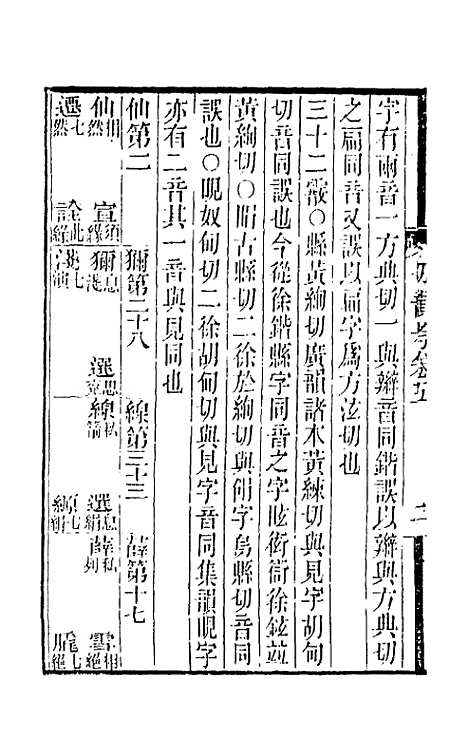 切韻考卷五 二
字有兩音一方典切一與辯音同鍇誤以辯與方典切
之扁同音又誤以扁字爲方泫切也
三十二霰〇縣黃絢切廣韻諸本黃練切與見字胡甸
切音同誤也今從徐鍇縣字同音之字眩衒徐鉉竝
黃絢切〇睊古縣切二徐於絢切與字烏縣切音同
誤也〇晛奴甸切二徐胡甸切與見字音同集韻晛字
亦有二音其一音與見同也
仙第二 獮第二十八 線第三十三 薛第十七
仙相然 宣須緣 獮息淺 選思兗 線私箭 選息絹 薛私列 雪相絕
遷七然 詮此緣 淺七演 縓七絹 膬七絕